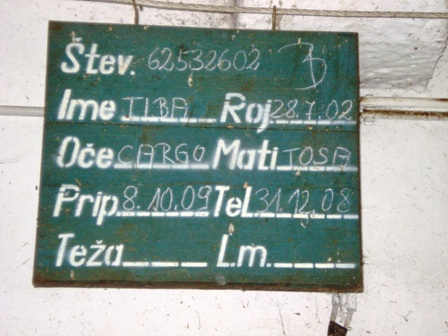 Štev. 62532602
Ime TILBA Roj. 28.7.02
Oče CARGO Mati TOSA
Prip. 8.10.09 Tel. 31.12.08
Teža L.m.